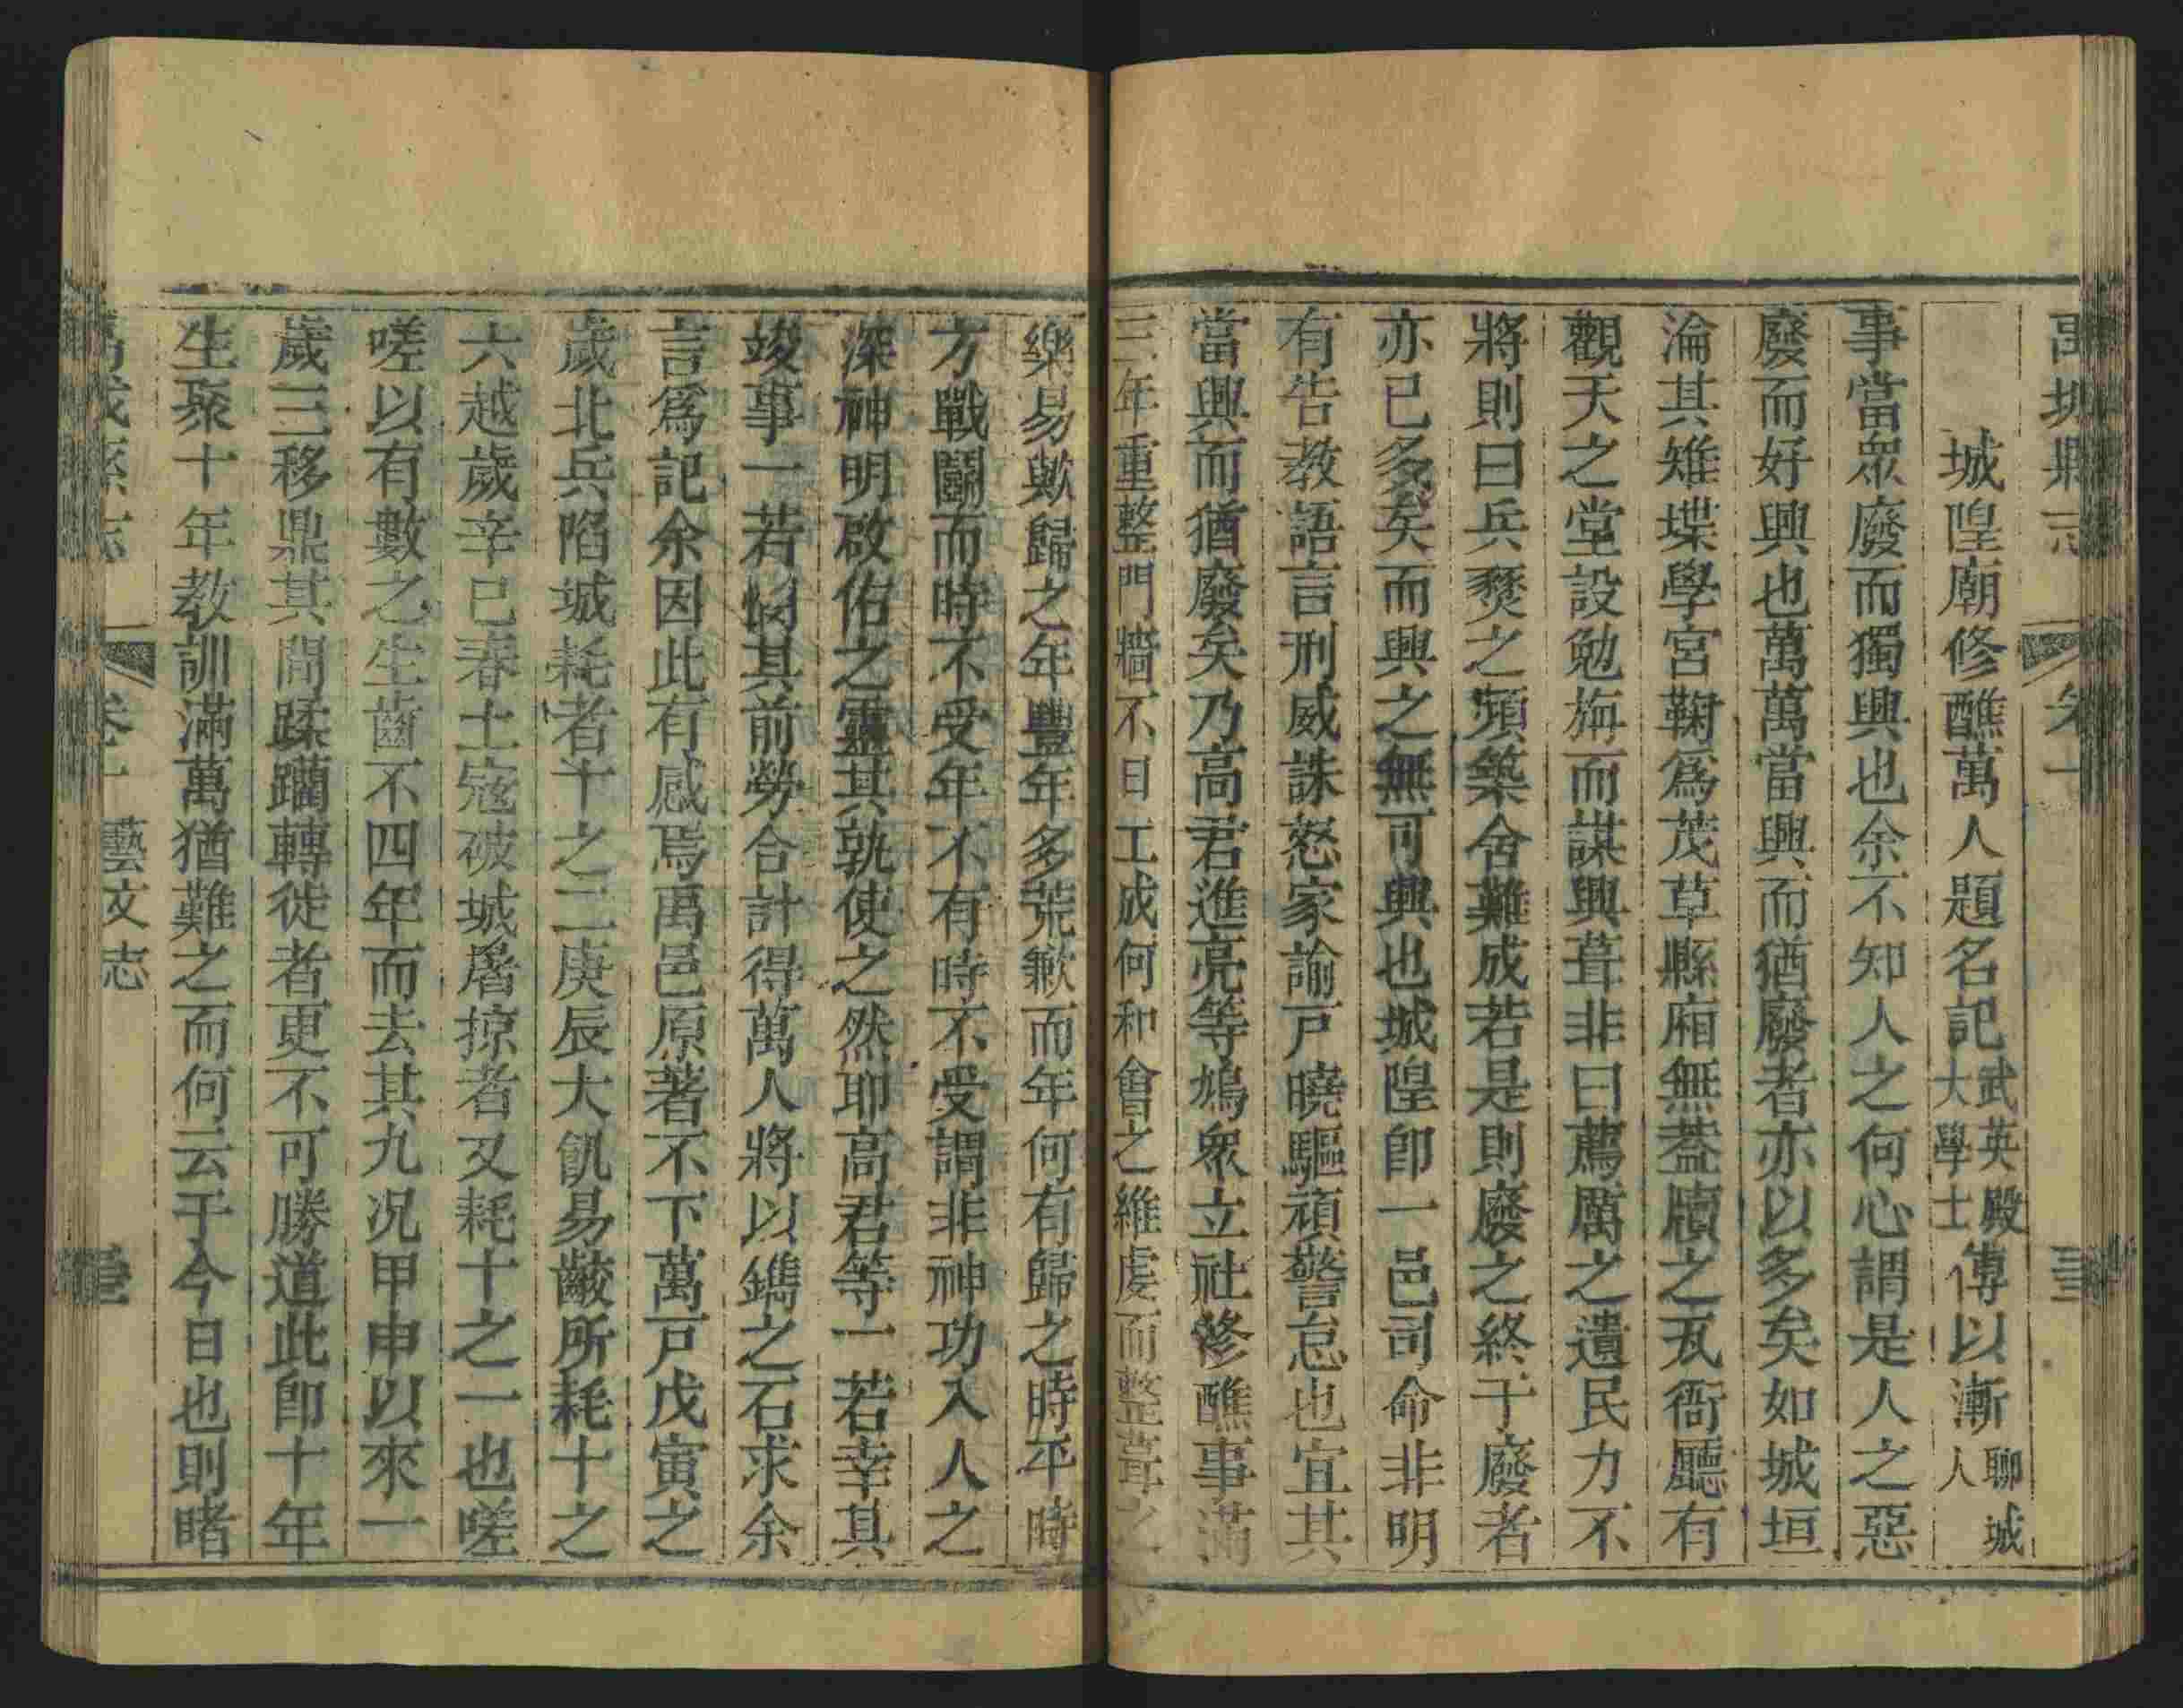 城隍廟修醮萬人題名記武英殿大學士傅以漸聊城人
事當眾廢而獨興也余不知人之何心謂是人之惡
廢而好興也萬萬當興而猶廢者亦以多矣如城垣
淪其雉堞學宮鞠爲茂草縣廂無葢牘之瓦衙廳有
觀天之堂設勉旃而謀興葺非曰薦厲之遺民力不
將則曰兵燹之頻築舍難成若是則廢之終于廢者
亦已多矣而興之無可興也城隍卽一邑司命非明
有告教語言刑威誅怒家諭戸曉驅頑警怠也宜其
當興而猶廢矣乃高君進亮等鳩眾立社修醮事滿
三年重整門牆不日工成何和會之維虔而整葺之
樂易歟歸之年豐年多荒歉而年何有歸之時平時
方戰鬭而時不受年不有時不受謂非神功入人之
深神明啟佑之靈其孰使之然耶高君等一若幸其
竣事一若惘其前勞合計得萬人將以鐫之石求余
言爲記余因此有感焉禹邑原著不下萬戸戊寅之
歲北兵陷城耗者十之二庚辰大飢易齩所耗十之
六越歲辛巳春土寇破城屠掠者又耗十之一也嗟
嗟以有數之生齒不四年而去其九况甲申以來一
歲三移鼎其間蹂躪轉徙者更不可勝道此卽十年
生聚十年教訓滿萬猶難之而何云于今日也則睹
卷十 藝文志